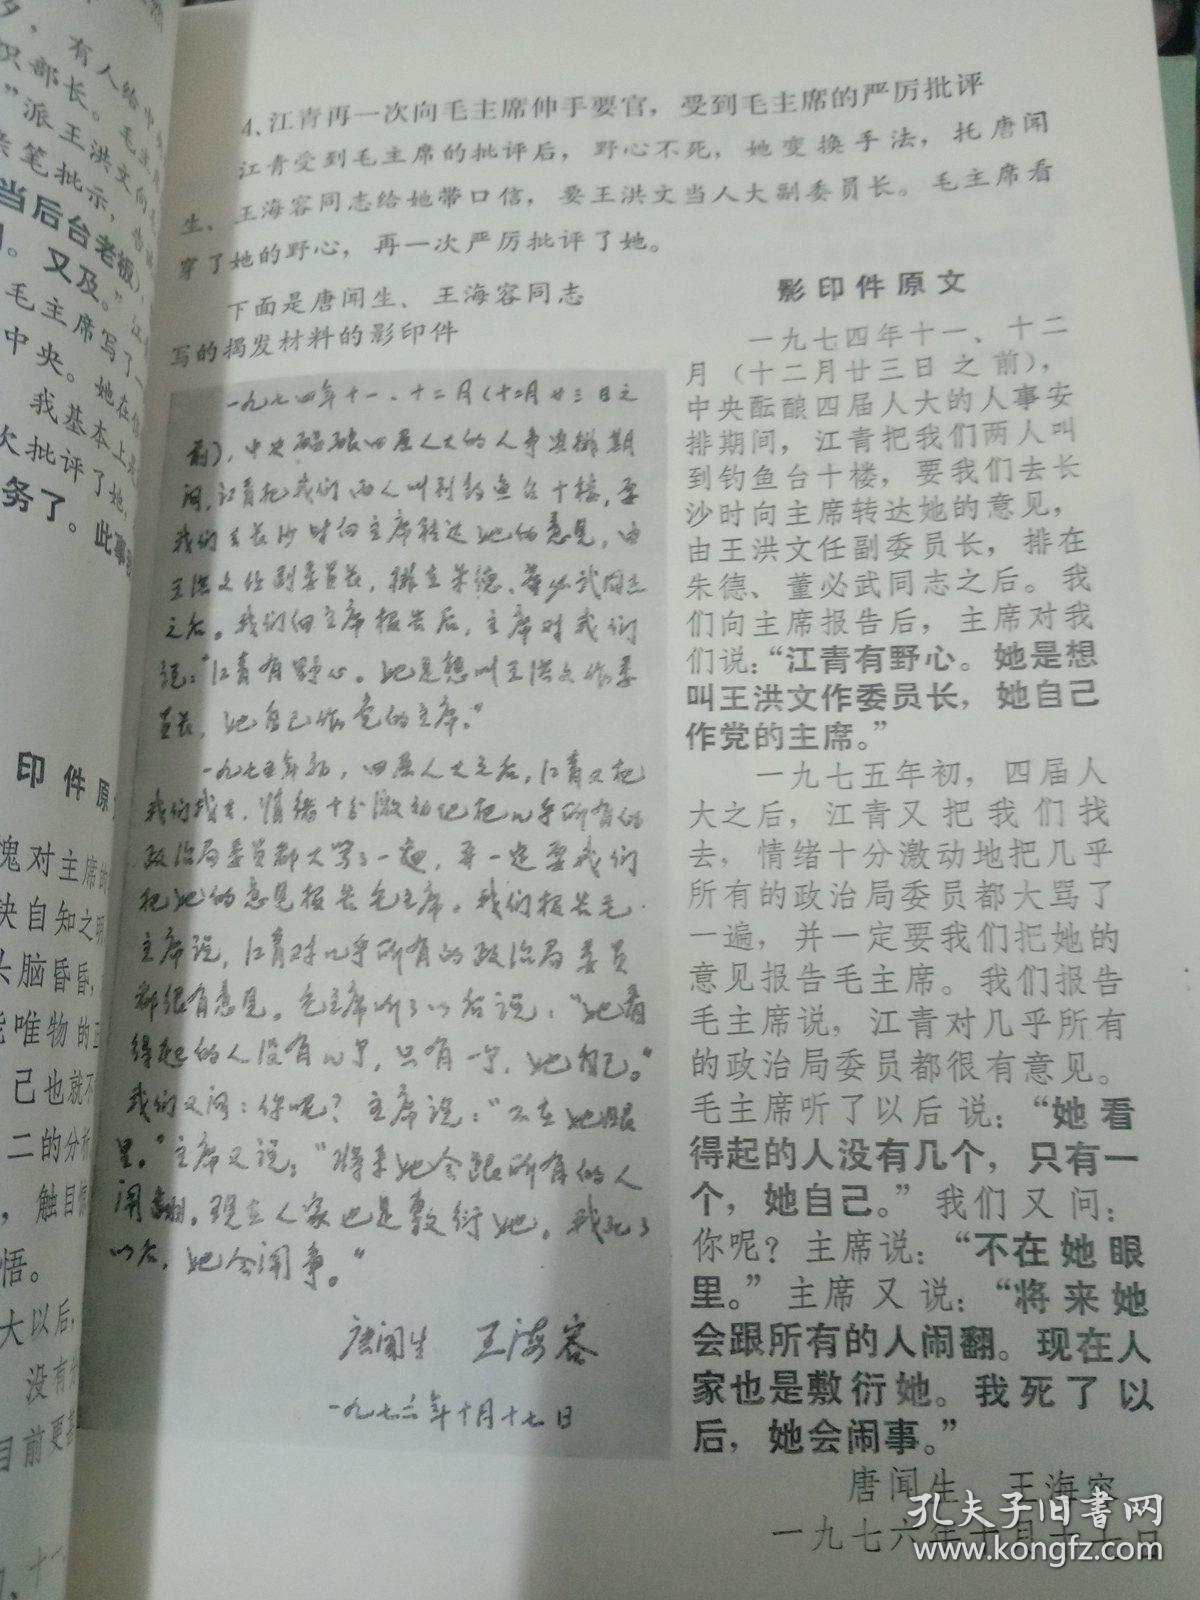 4.江青再一次向毛主席伸手要官，受到毛主席的严厉批评
江青受到毛主席的批评后，野心不死，她变换手法，托唐闻
生、王海容同志给她带口信，要王洪文当人大副委员长。毛主席看
穿了她的野心，再一次严厉批评了她。
下面是唐闻生、王海容同志
写的揭发材料的影印件
一九七四年十一、十二月（十二月廿三日之
前），中央酝酿四届人大的人事安排期
间，江青把我们两人叫到钓鱼台十楼，要
我们去长沙时向主席转达她的意见，由
王洪文任副委员长，排在朱德、董必武同志
之后。我们向主席报告后，主席对我们
说：“江青有野心。她是想叫王洪文作委
员长，她自己作党的主席。”
一九七五年初，四届人大之后，江青又把
我们找去，情绪十分激动地把几乎所有的
政治局委员都大骂了一遍，并一定要我们
把她的意见报告毛主席。我们报告毛
主席说，江青对几乎所有的政治局委员
都很有意见。毛主席听了以后说：“她看
得起的人没有几个，只有一个，她自己。”
我们又问：你呢？主席说：“不在她眼
里。”主席又说：“将来她会跟所有的人
闹翻。现在人家也是敷衍她。我死了
以后，她会闹事。”
唐闻生 王海容
一九七六年十月十七日
影印件原文
一九七四年十一、十二
月（十二月廿三日之前），
中央酝酿四届人大的人事安
排期间，江青把我们两人叫
到钓鱼台十楼，要我们去长
沙时向主席转达她的意见，
由王洪文任副委员长，排在
朱德、董必武同志之后。我
们向主席报告后，主席对我
们说：“江青有野心。她是想
叫王洪文作委员长，她自己
作党的主席。”
一九七五年初，四届人
大之后，江青又把我们找
去，情绪十分激动地把几乎
所有的政治局委员都大骂了
一遍，并一定要我们把她的
意见报告毛主席。我们报告
毛主席说，江青对几乎所有
的政治局委员都很有意见。
毛主席听了以后说：“她看
得起的人没有几个，只有一
个，她自己。”我们又问：
你呢？主席说：“不在她眼
里。”主席又说：“将来她
会跟所有的人闹翻。现在人
家也是敷衍她。我死了以
后，她会闹事。”
唐闻生 王海容
一九七六年十月十七日
，有人给中
织部长。毛主席
”派王洪文向毛
亲笔批示，告诫
当后台老板），
。又及。”江青
毛主席写了一
中央。她在信
我基本上是
次批评了她，
务了。此事
印件原
愧对主席的
缺自知之明
头脑昏昏，
能唯物的正
己也就不
二的分析
，触目惊
悟。
大以后，
没有分
目前更
孔夫子旧书网
www.kongfz.com